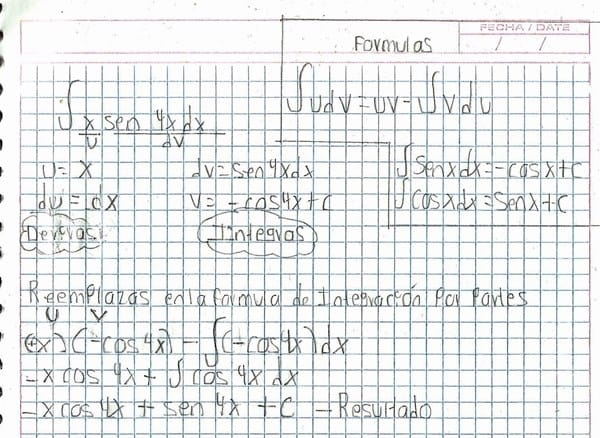 FECHA / DATE
/ /
Formulas
∫ x sen 4x dx
u dv
∫udv=uv-∫vdu
u= x
du = dx
Derivas
dv=sen4xdx
v= -cos4x+c
Integras
∫senxdx=-cosx+c
∫cosxdx=senx+c
Reemplazas en la formula de Integración Por Partes
u v
(x)(-cos4x) - ∫(-cos4x)dx
-x cos 4x + ∫ cos 4x dx
-x cos 4x + sen 4x +c - Resultado